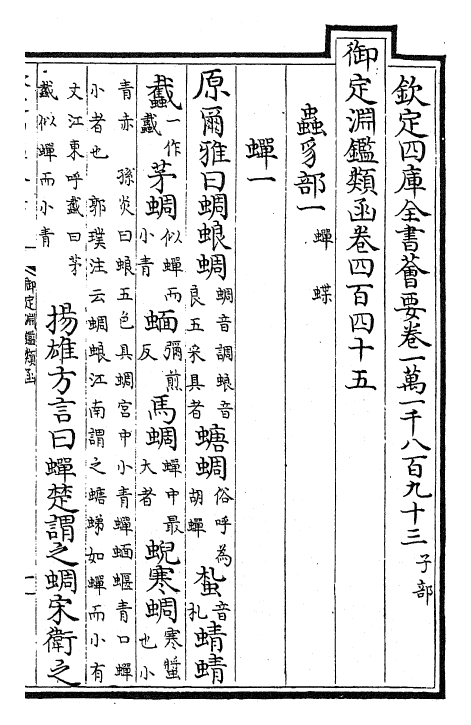 欽定四庫全書薈要卷一萬一千八百九十三 子部
御定淵鑑類函卷四百四十五
蟲豸部一 蟬 蝶
蟬一
原爾雅曰蜩蜋蜩 蜩音調蜋音良五采具者 螗蜩 俗呼為胡蟬 蚻 音札 蜻蜻
蠽 一作䘁 茅蜩 似蟬而小青 蝒 彌煎反 馬蜩 蟬中最大者 蜺寒蜩 寒螿也小
青赤 孫炎曰蜋五色具蜩宮中小青蟬蝒蝘青口蟬
小者也 郭璞注云蜩蜋江南謂之螗蛦如蟬而小有
文江東呼䘁曰茅
䘁似蟬而小青 揚雄方言曰蟬楚謂之蜩宋衛之
御定淵鑑類函
一